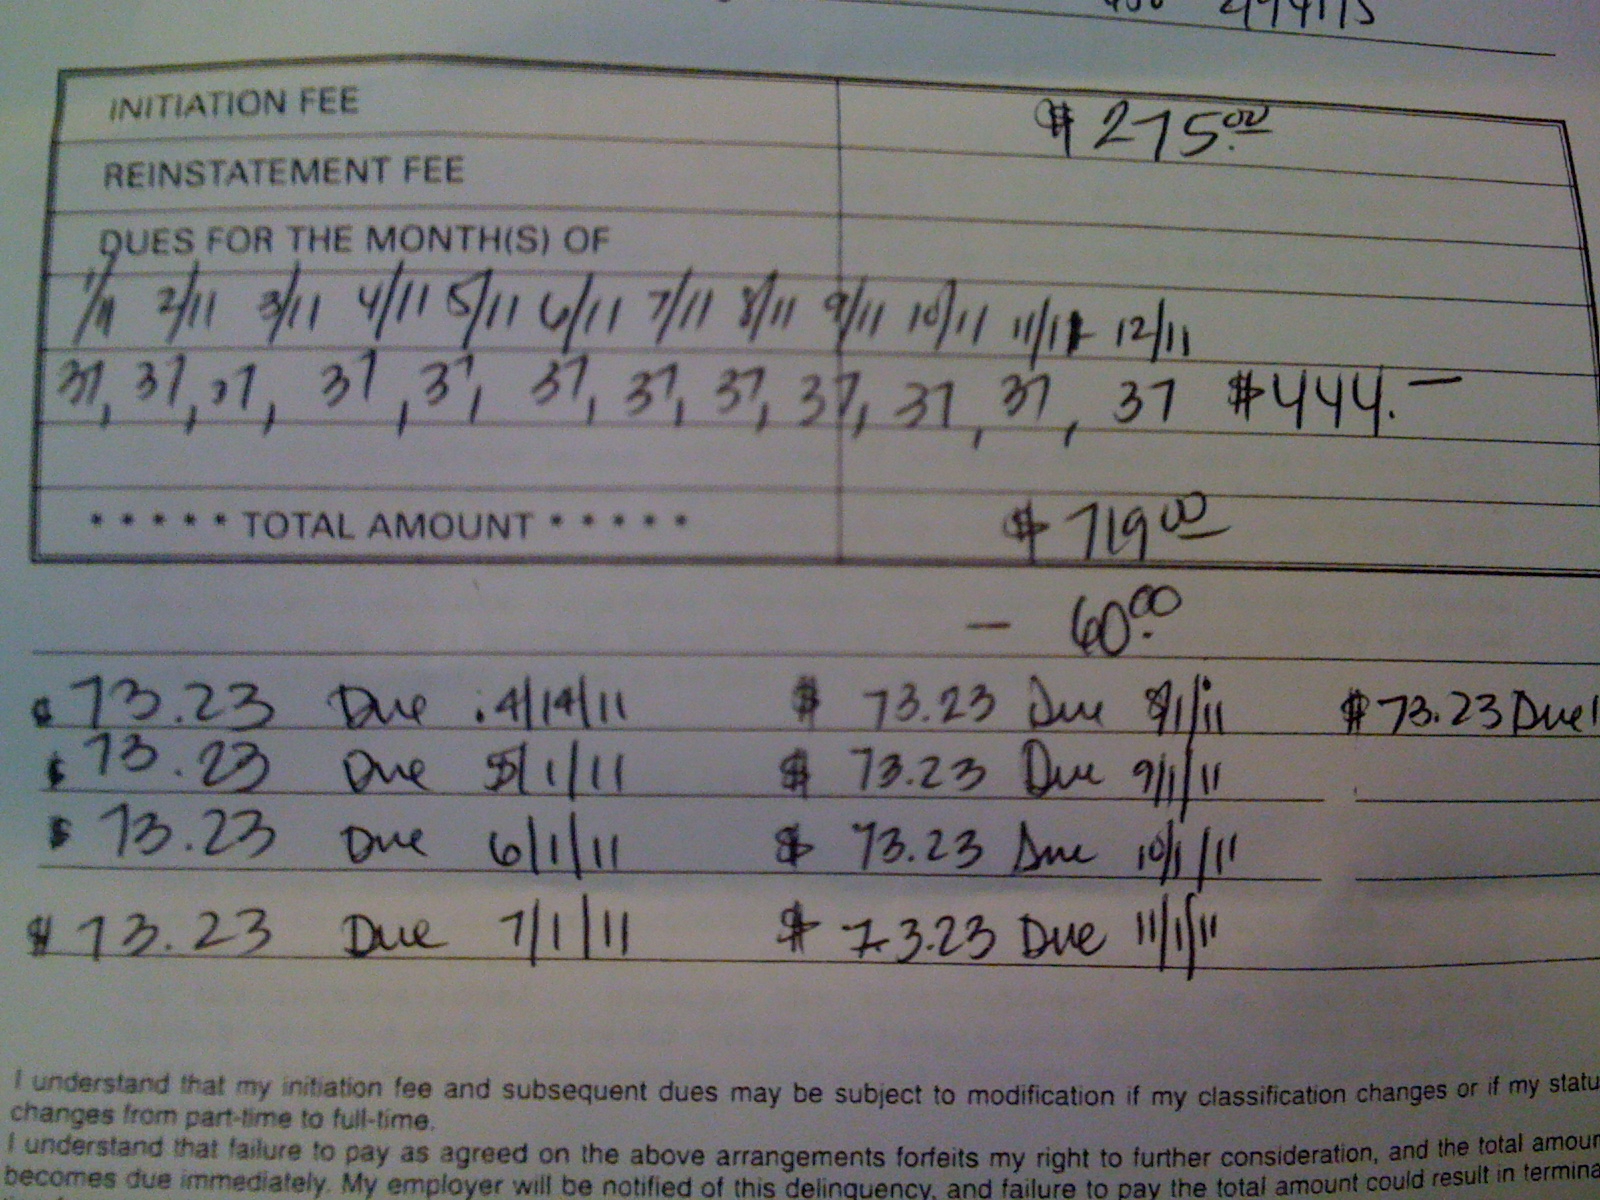 INITIATION FEE $ 275.00
REINSTATEMENT FEE
DUES FOR THE MONTH(S) OF
1/11 2/11 3/11 4/11 5/11 6/11 7/11 8/11 9/11 10/11 11/11 12/11
37, 37, 37, 37, 37, 37, 37, 37, 37, 37, 37, 37 $444.—
• • • • • TOTAL AMOUNT • • • • • $ 719 00
— 60.00
$ 73.23 Due 4/14/11 $ 73.23 Due 8/1/11 $73.23 Due
$ 73.23 Due 5/1/11 $ 73.23 Due 9/1/11
$ 73.23 Due 6/1/11 $ 73.23 Due 10/1/11
$ 73.23 Due 7/1/11 $ 73.23 Due 11/1/11
I understand that my initiation fee and subsequent dues may be subject to modification if my classification changes or if my statu
changes from part-time to full-time.
I understand that failure to pay as agreed on the above arrangements forfeits my right to further consideration, and the total amoun
becomes due immediately. My employer will be notified of this delinquency, and failure to pay the total amount could result in termina